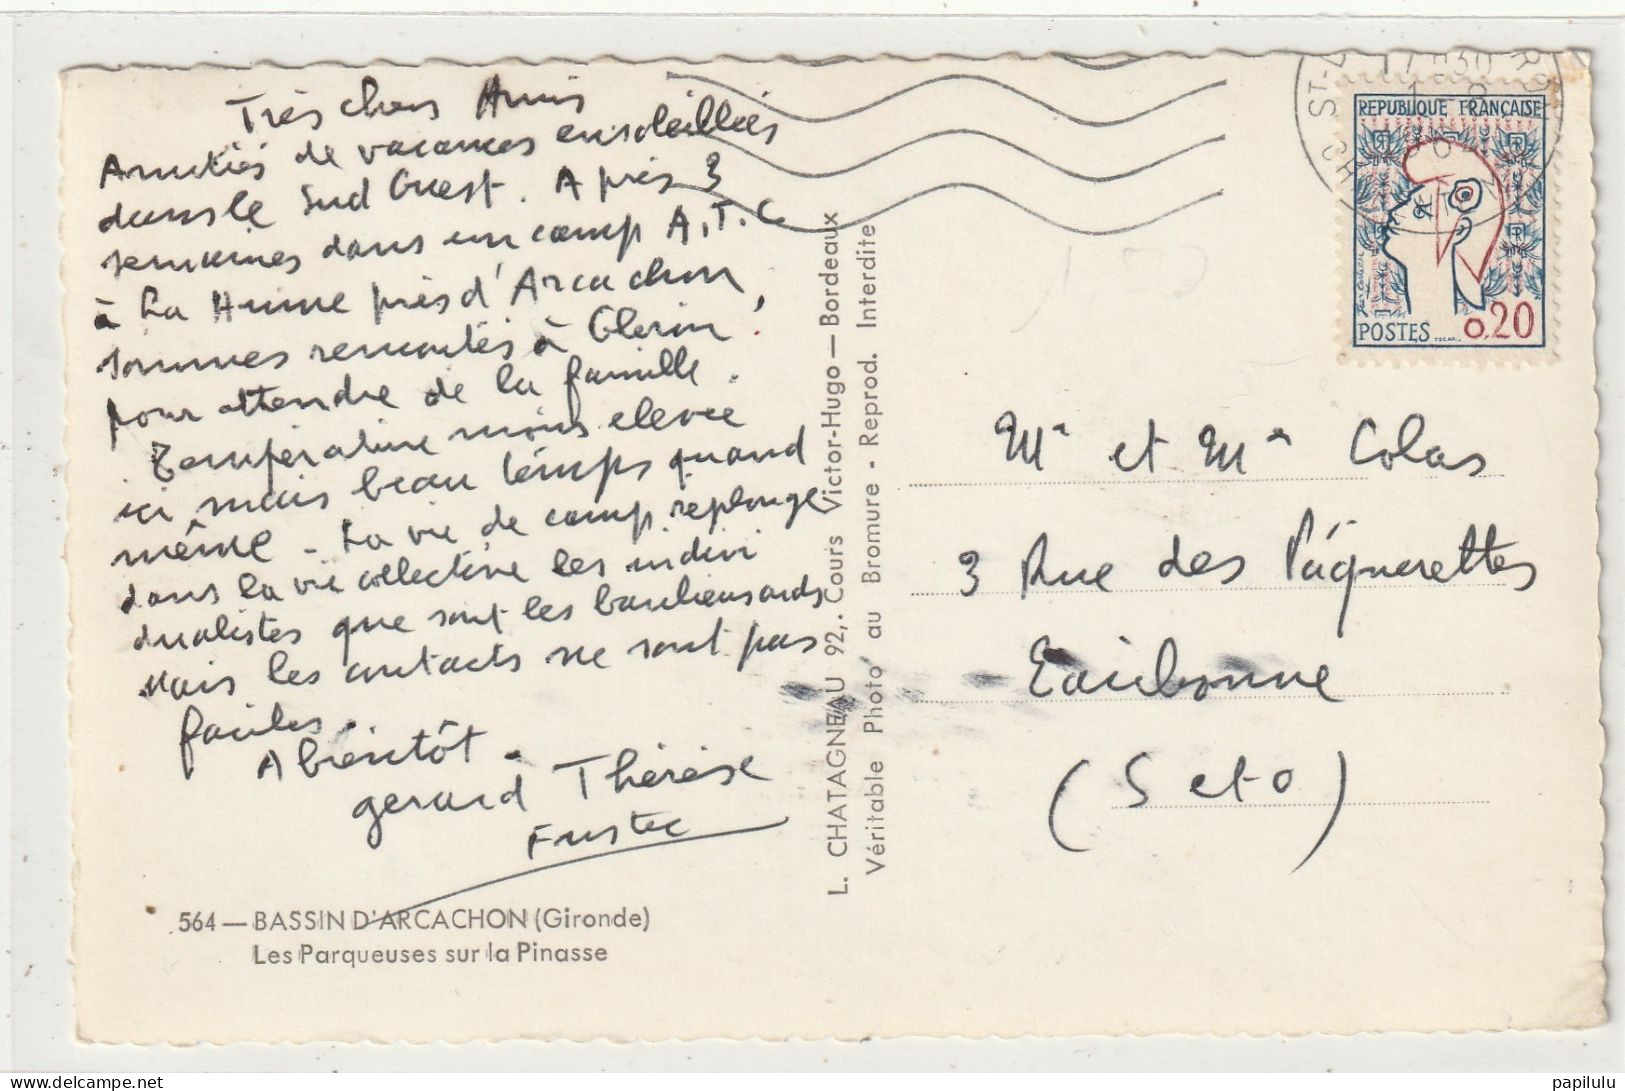 Très chers Amis
Amitiés de vacances ensoleillées
dans le Sud Ouest. Après 3
semaines dans un camp A.T.C
à La Hume près d'Arcachon,
sommes remontés à
pour attendre de la famille.
Température moins elevée
ici mais beau temps quand
même - La vie de camp replonge
dans la vie collective les indivi
dualistes que sont les banlieusards
Mais les contacts ne sont pas
faciles.
A bientôt.
gerard Thérèse
564 — BASSIN D'ARCACHON (Gironde)
Les Parqueuses sur la Pinasse
L. CHATAGNEAU 92,. Cours Victor-Hugo — Bordeaux
Véritable Photo au Bromure - Reprod. Interdite
ST-
REPUBLIQUE FRANÇAISE
RF
POSTES 0,20
Mr et Me Colas
3 Rue des Pâquerettes
Eaubonne
(S et O)
papilulu